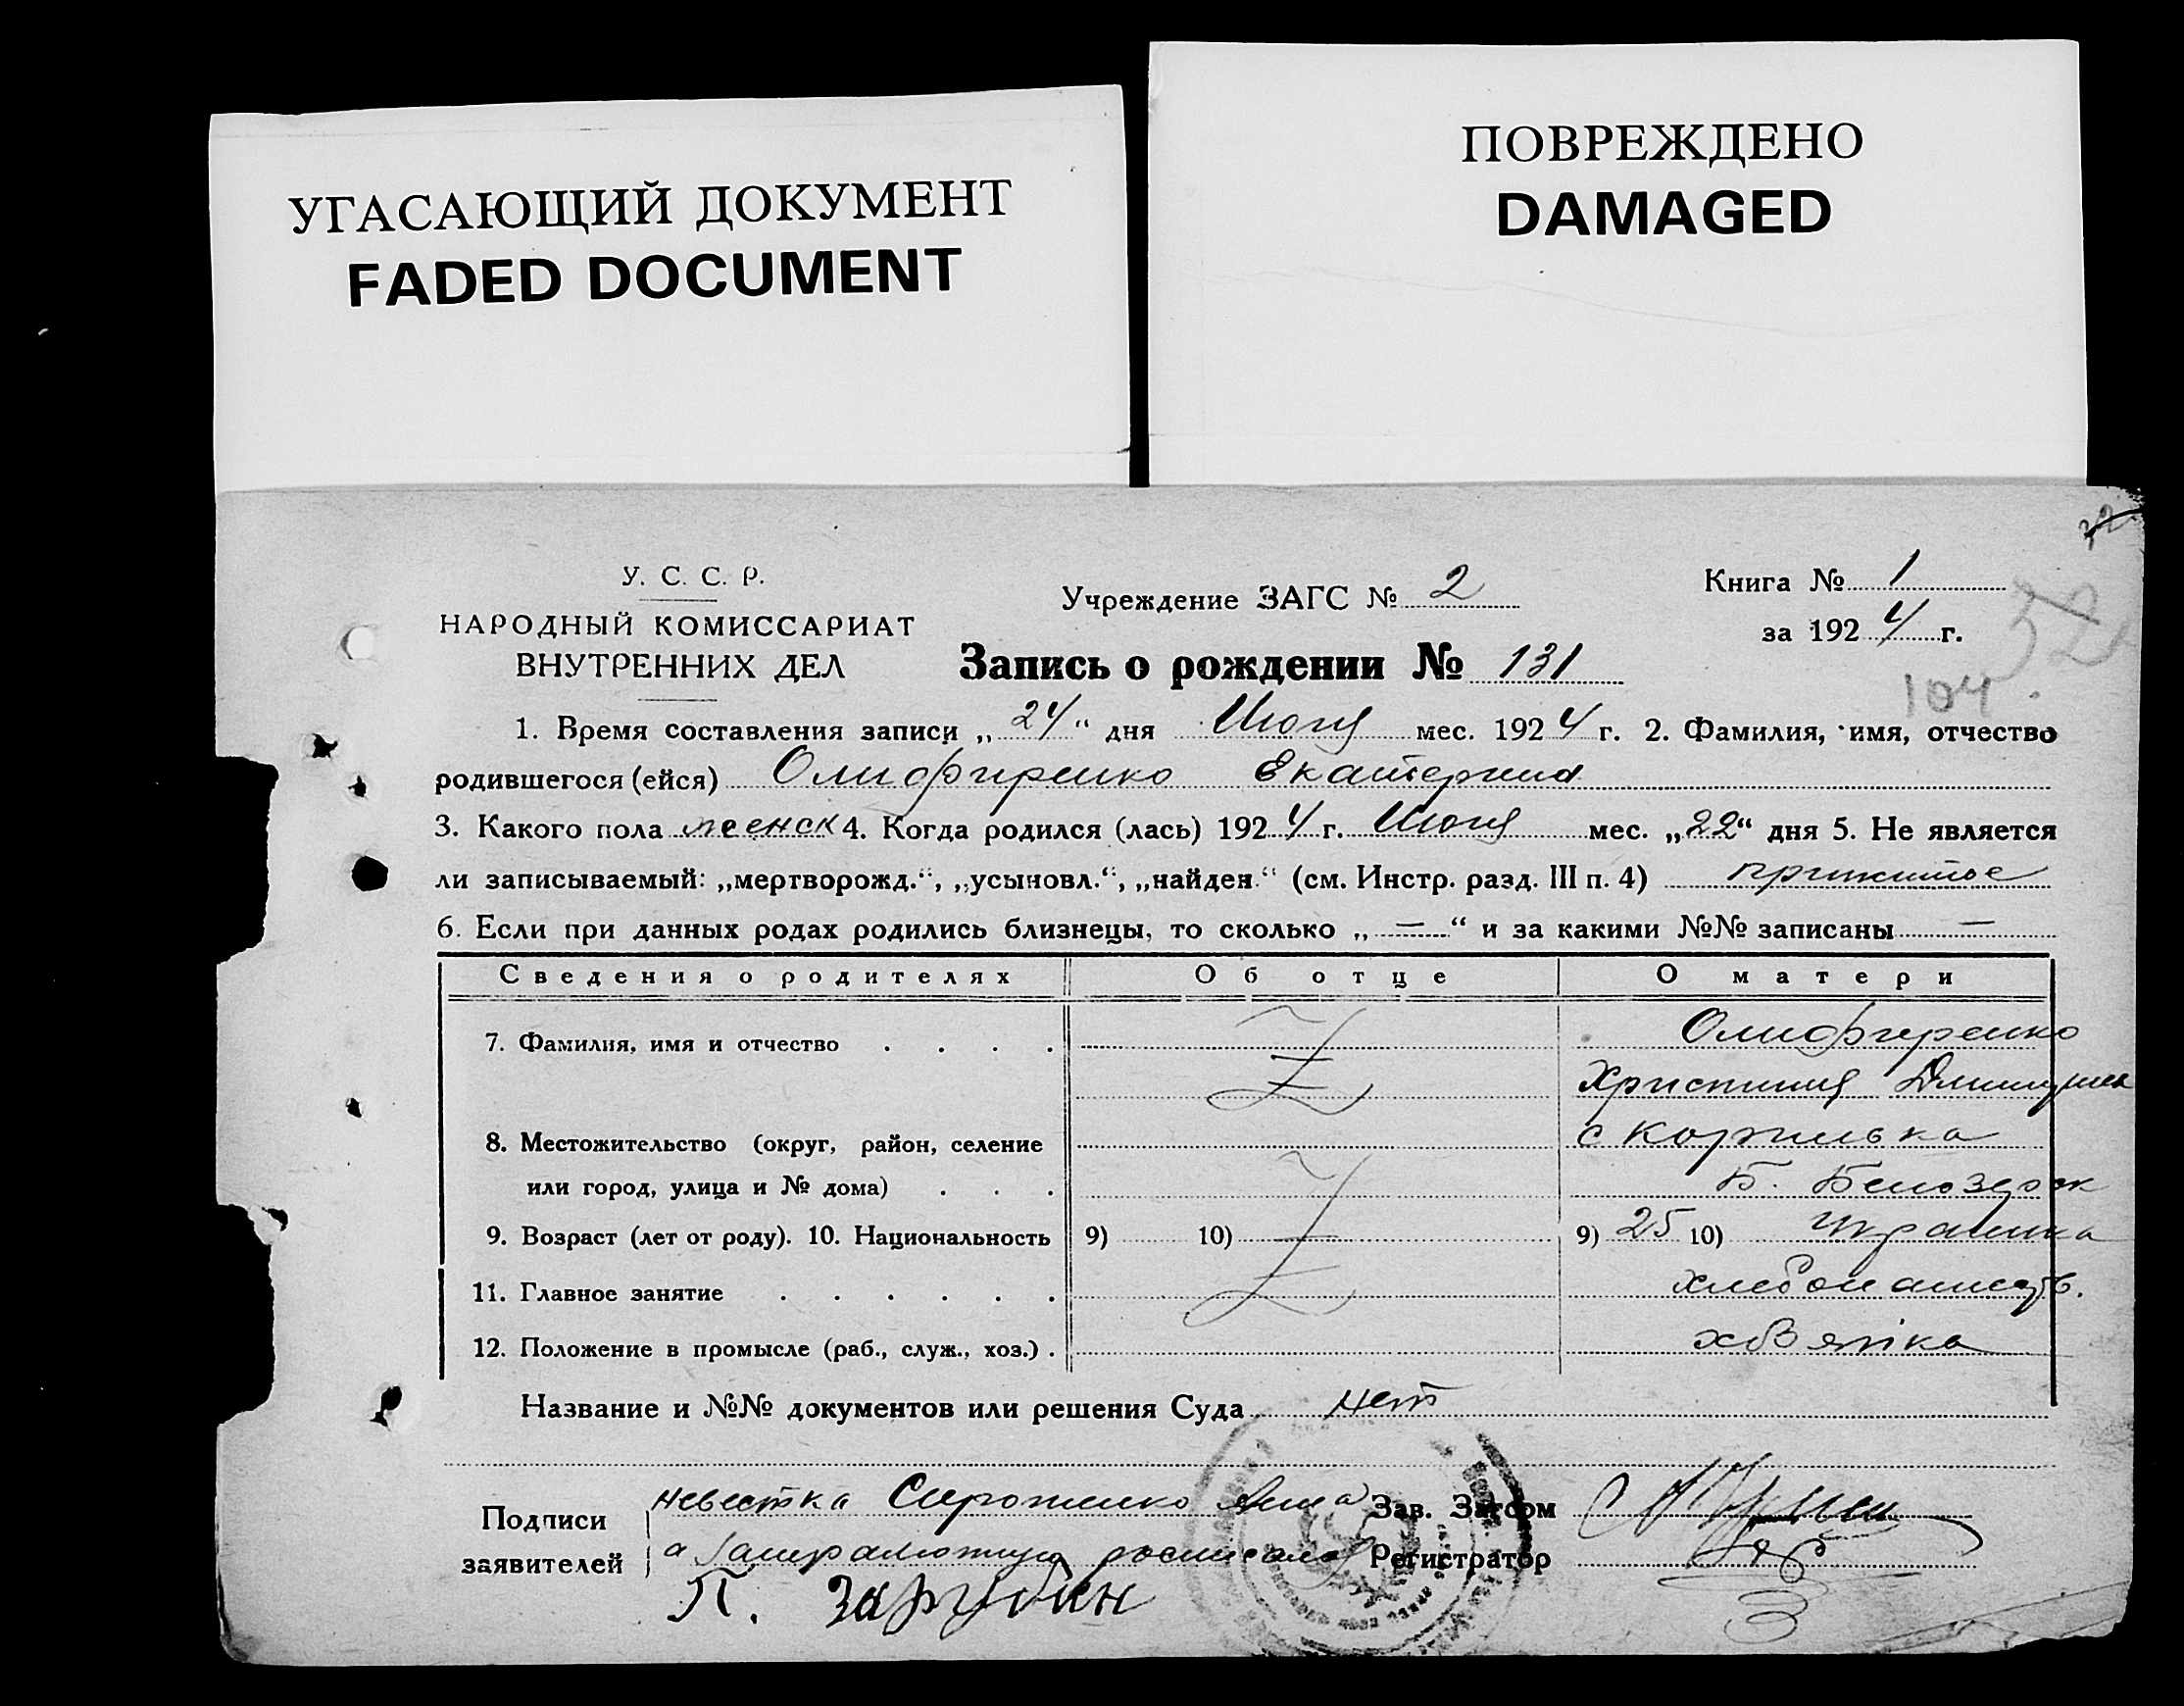 УГАСАЮЩИЙ ДОКУМЕНТ
FADED DOCUMENT
ПОВРЕЖДЕНО
DAMAGED
У. С. С. Р.
НАРОДНЫЙ КОМИССАРИАТ
ВНУТРЕННИХ ДЕЛ
Учреждение ЗАГС № 2
Книга № 1
за 1924 г.
52
104
Запись о рождении № 131
1. Время составления записи „24“ дня Июня мес. 1924 г. 2. Фамилия, имя, отчество
родившегося (ейся) Олифиренко Екатерина
3. Какого пола женск 4. Когда родился (лась) 1924 г. Июня мес. „22“ дня 5. Не является
ли записываемый: „мертворожд.“, „усыновл.“, „найден.“ (см. Инстр. разд. III п. 4) прижитое
6. Если при данных родах родились близнецы, то сколько „—“ и за какими №№ записаны —
Сведения о родителях Об отце О матери
7. Фамилия, имя и отчество Олифиренко
Христиния
8. Местожительство (округ, район, селение с
или город, улица и № дома) Б. Белозерск
9. Возраст (лет от роду). 10. Национальность 9) 10) 9) 25 10) Украинка
11. Главное занятие хлебопашеств.
12. Положение в промысле (раб., служ., хоз.)
Название и №№ документов или решения Суда нет
Подписи
заявителей
невестка Сиротенко Анна
а
П. Зарубин
Зав. Загсом
Регистратор